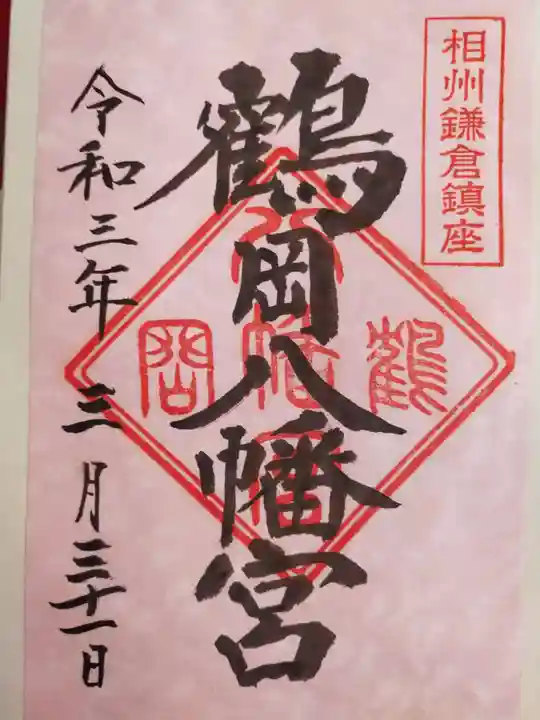 相州鎌倉鎮座
鶴岡八幡宮
令和三年三月三十一日
鶴
岡